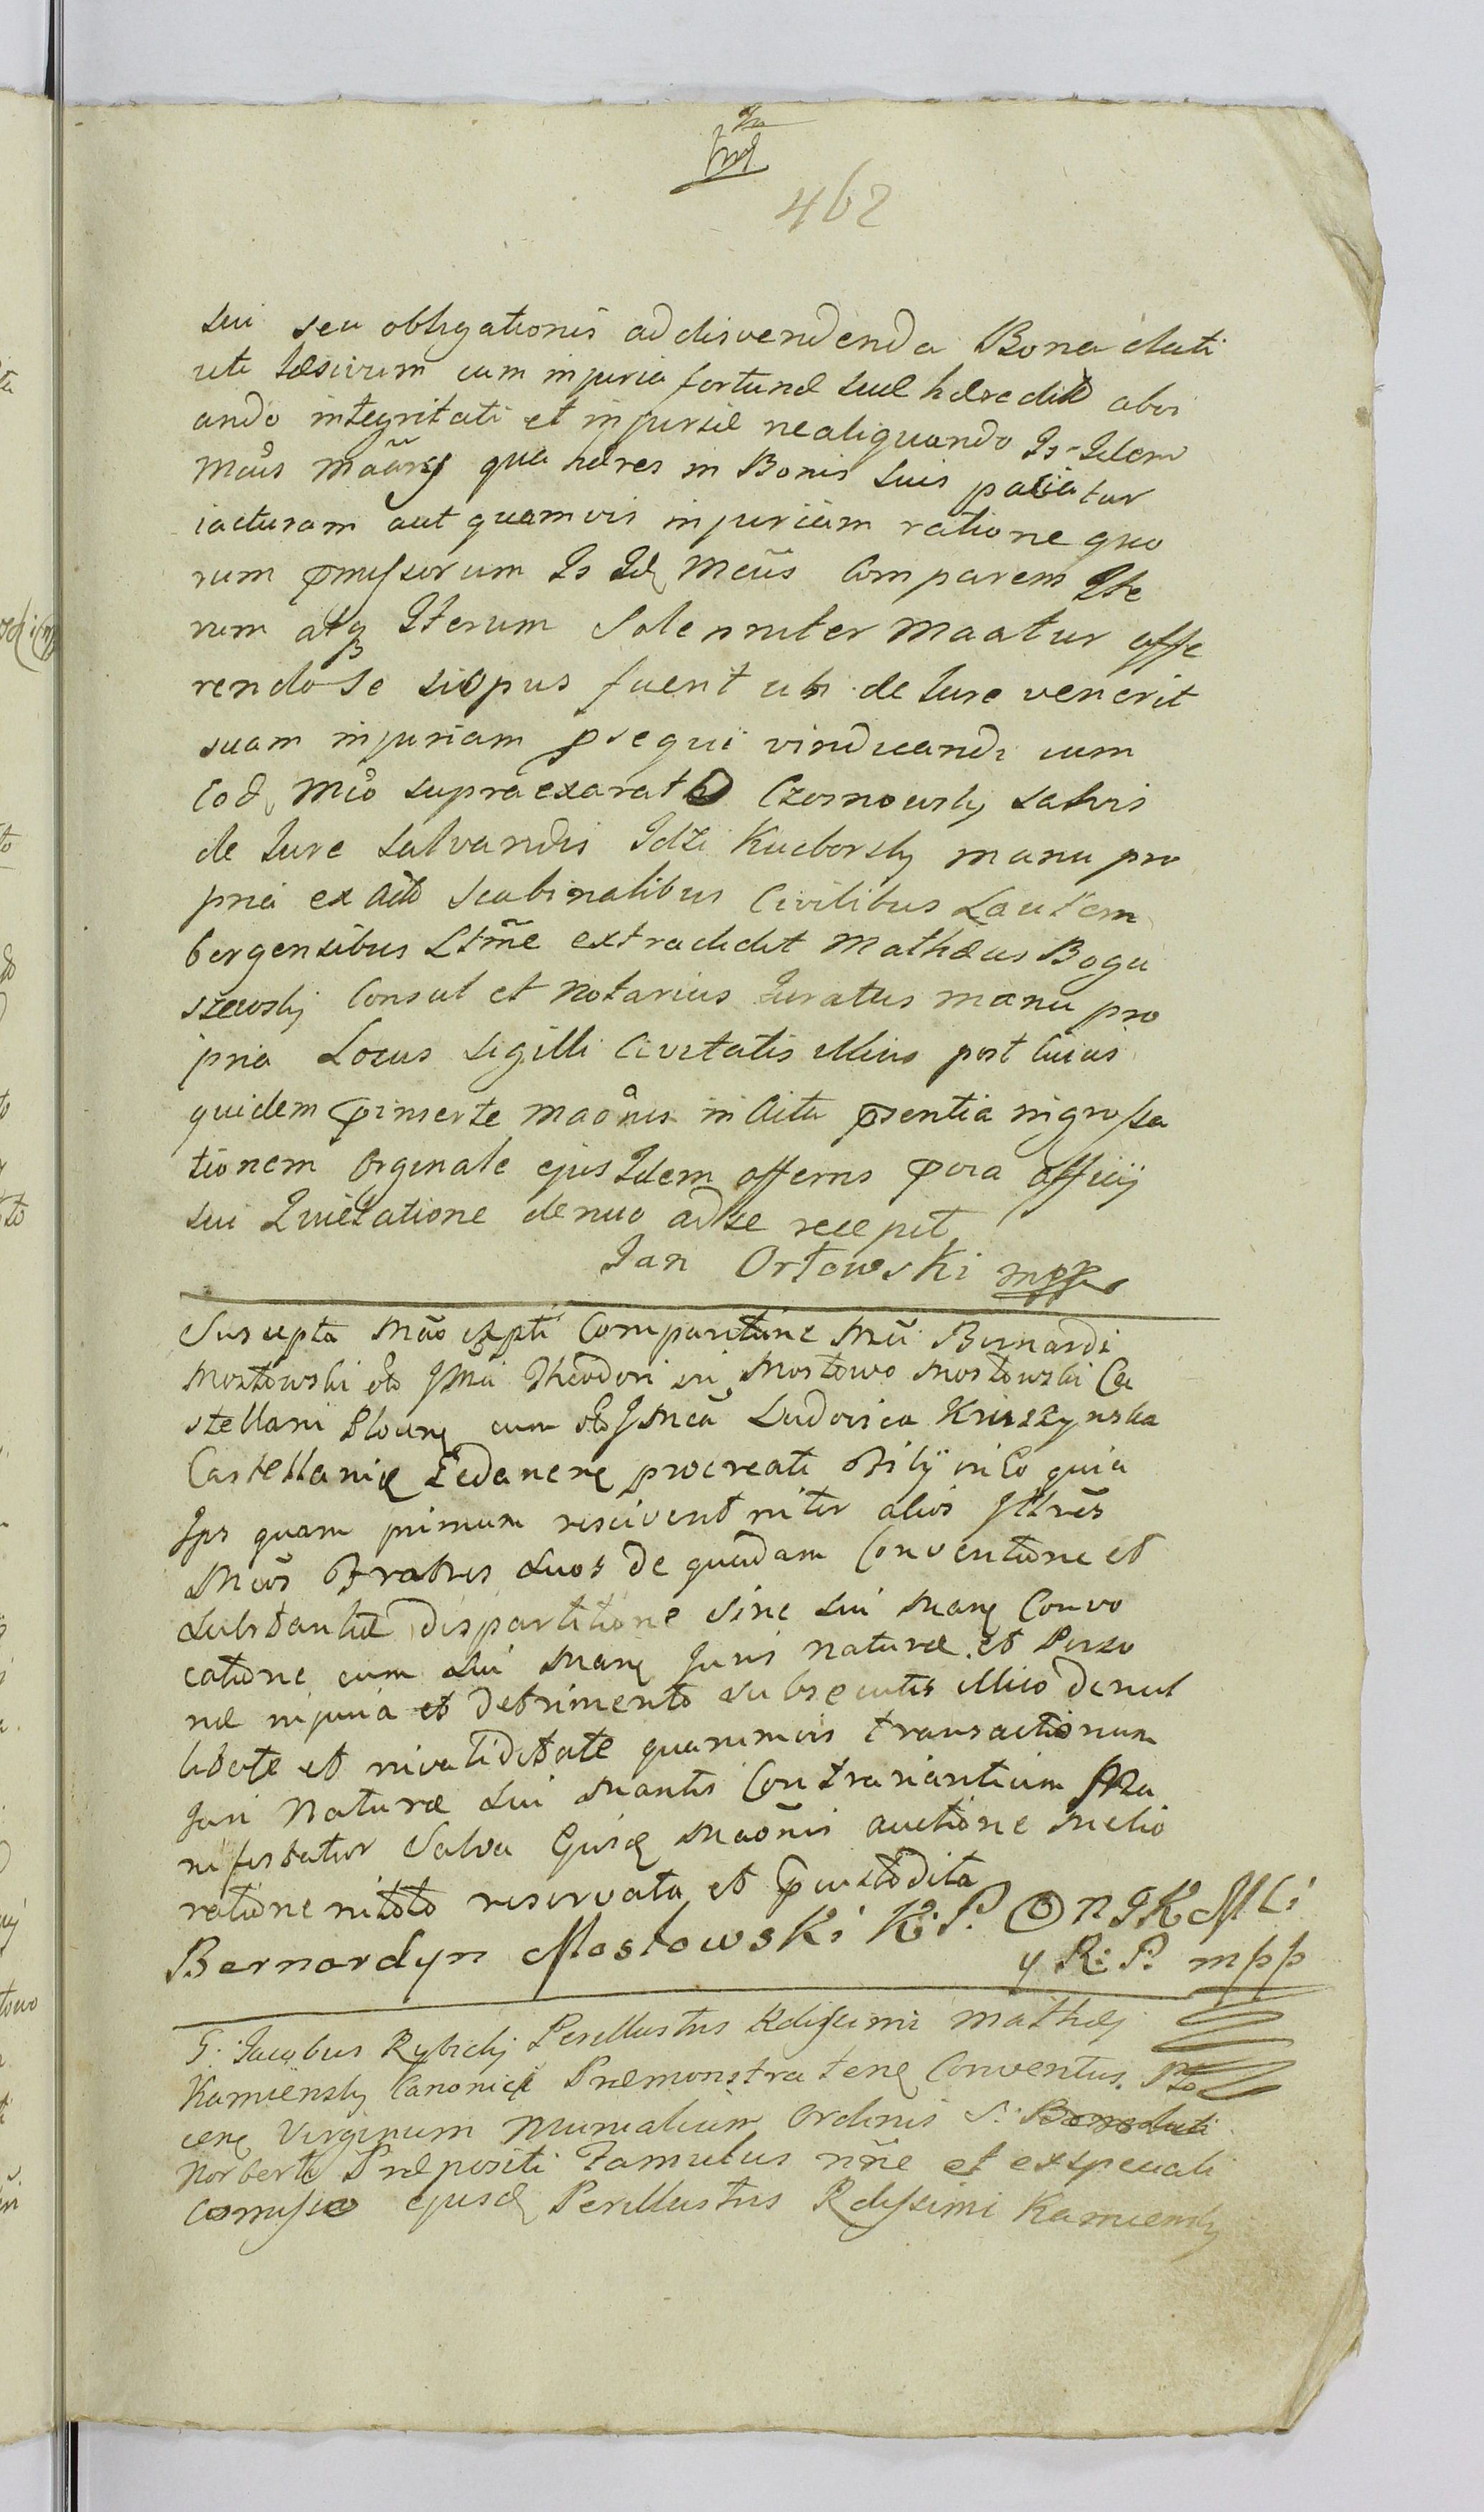 462
sui seu obligationis ad disvendenda Bona dati
uti Læsivum cum injuria fortunæ suæ hæredit abvi
ando integritati et injuriæ ne aliquando Is-Idem
Mcus Maāns qua hæres in Bonis suis paciatur
iacturam aut quamvis injuriam ratione quo
rum pmissorum Is Idq Mcūs Comparens Ite
rum atq Iterum Solenniter Maatur offe
rendo se si opus fuerit ubi de Iure venerit
suam injuriam psequi vindicandi cum
Eod Mco supraexarato Czosnowsky salvis
de Iure salvandis Idzi Kucborsky manu pro
pria ex Actis Scabinalibus Civilibus Lautem
bergensibus Ltmē extradidit Mathæus Bogu
szewsky Consul et Notarius Iuratus manu pro
pria Locus Sigilli Civitatis illius post cuius
quidem pinserte maōnis in Acta psentia ingrossa
tionem Orginale ejus Idem offerens pvia officij
sui Quietatione denuo ad se recepit
Jan Orłowski mpp
Suscepta Mão Comparitione Mci Bernardi
Mostowski olo Theodori in Mostowo Mostowski Ca
stellani Plocens cum olo Ludovica Kruszynska
Castellaniq Gedanenq procreati Filij in Eo quia
Ips quam primum resciverit inter alios Illrēs
Mcos Fratres suos de quadam Conventione et
substantiæ dispartitione sine sui Manq Convo
catione cum sui Manq Juris naturæ et Perso
næ injuria et detrimento subsecutis illico de nul
litate et invaliditate quarumvis transactionum
Juri Naturæ sui Mantis Contrariantium Ma
nifestatur Salva Ejusq Maōnis auctione melio
ratione in toto reservata et pcustodita
Bernardyn Mostowski K. P. O n J K M Ci
y R: P. mpp
G. Jacobus Rybicky Perillustris Rdissimi Mathæj
Kamiensky Canonici Præmonstratenq Conventus Plo
cenq Virginum Monialium Ordinis S.
Norberti Præpositi Famulus nñe et ex speciali
Comisso ejusq Perillustris Rdissimi Kamiensky